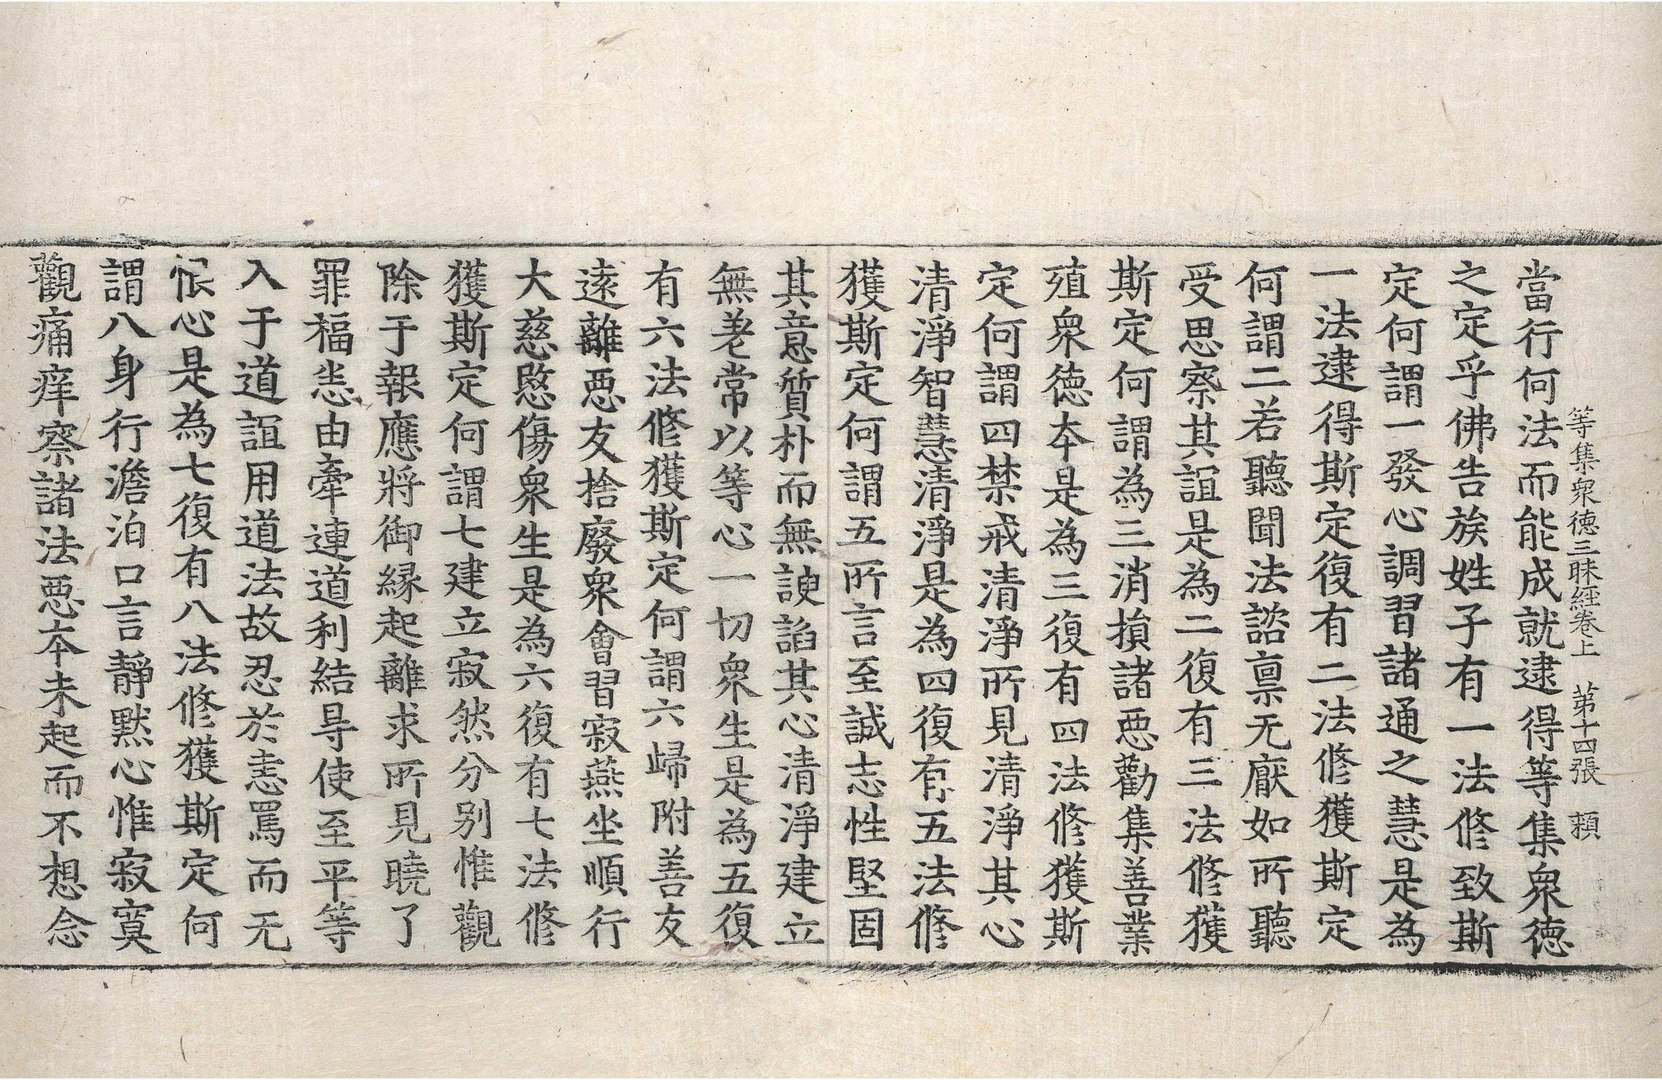 等集衆德三昧經卷上 第十四張 頼
當行何法而能成就逮得等集衆德
之定乎佛告族姓子有一法修致斯
定何謂一發心調習諸通之慧是為
一法逮得斯定復有二法修獲斯定
何謂二若聽聞法諮禀无厭如所聽
受思察其誼是為二復有三法修獲
斯定何謂為三消損諸惡勸集善業
殖衆德本是為三復有四法修獲斯
定何謂四禁戒清淨所見清淨其心
清淨智慧清淨是為四復有五法修
獲斯定何謂五所言至誠志性堅固
其意質朴而無諛諂其心清淨建立
無差常以等心一切衆生是為五復
有六法修獲斯定何謂六歸附善友
遠離惡友捨廢衆會習寂燕坐順行
大慈愍傷衆生是為六復有七法修
獲斯定何謂七建立寂然分别惟觀
除于報應將御縁起離求所見曉了
罪福悉由牽連道利結㝵使至平等
入于道誼用道法故忍於恚罵而无
恨心是為七復有八法修獲斯定何
謂八身行澹泊口言靜默心惟寂寞
觀痛痒察諸法惡本未起而不想念